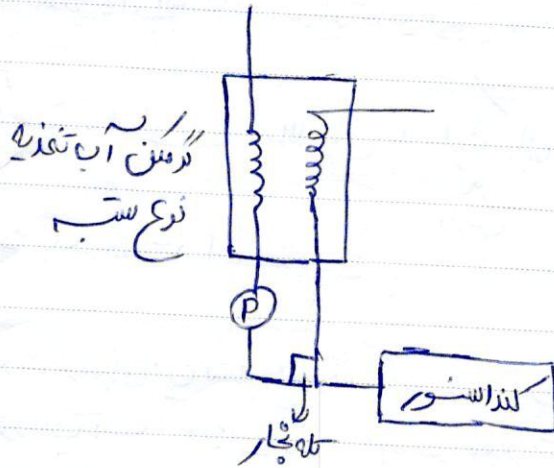 گرمکن آب تغذیه
نوع بسته
P
کندانسور
تله بخار